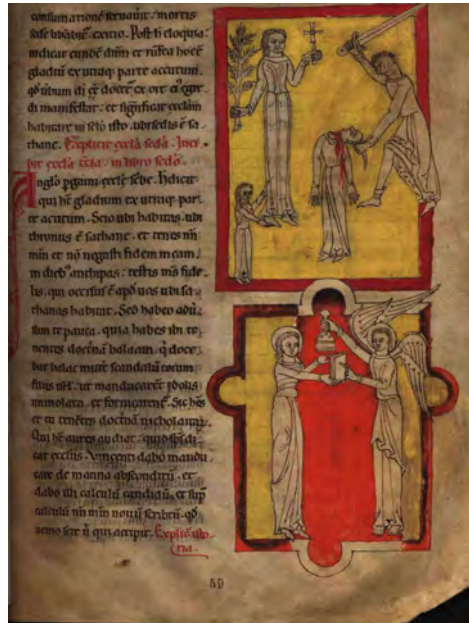 consumatione seruauit. mortis
sede
Post h eloquia
indicat eunde dnm
gladiu ex utraq parte accutum.
di manifestat. et significat ecclam
habitare in sclo isto. ubi sedis e sa-
thane. Explicit eccla scda. Inci-
pit eccla tcia. in libro scdo.
Anglo pgami eccle scbe. H dicit
qui ht gladium ex utraq par-
te acutum. Scio ubi habitas. ubi
thronus e sathane. et tenes nm
mm et no negasti fidem meam.
in dieb anthipas. testis ms fide-
lis. qui occisus e apd uos ubi sa-
thanas habitat. Sed habeo adu-
sum te pauca. quia habes ibi te-
nentes doctna balaam. q doce-
bat balac mittere scandalu coram
filiis isrl. ut manducarent
immolata. et fornicarent. Sic hes
et tu tenetes doctna nicholaitaru.
Qui ht aures audiat. quid sps di-
cat ecclis. Vincenti dabo mandu-
care de manna absconditu. et
dabo illi calculu candidu. et sup
calculu nm nouu scribtu. qd
nemo scit n qui accipit. Explic isto-
ria.
59